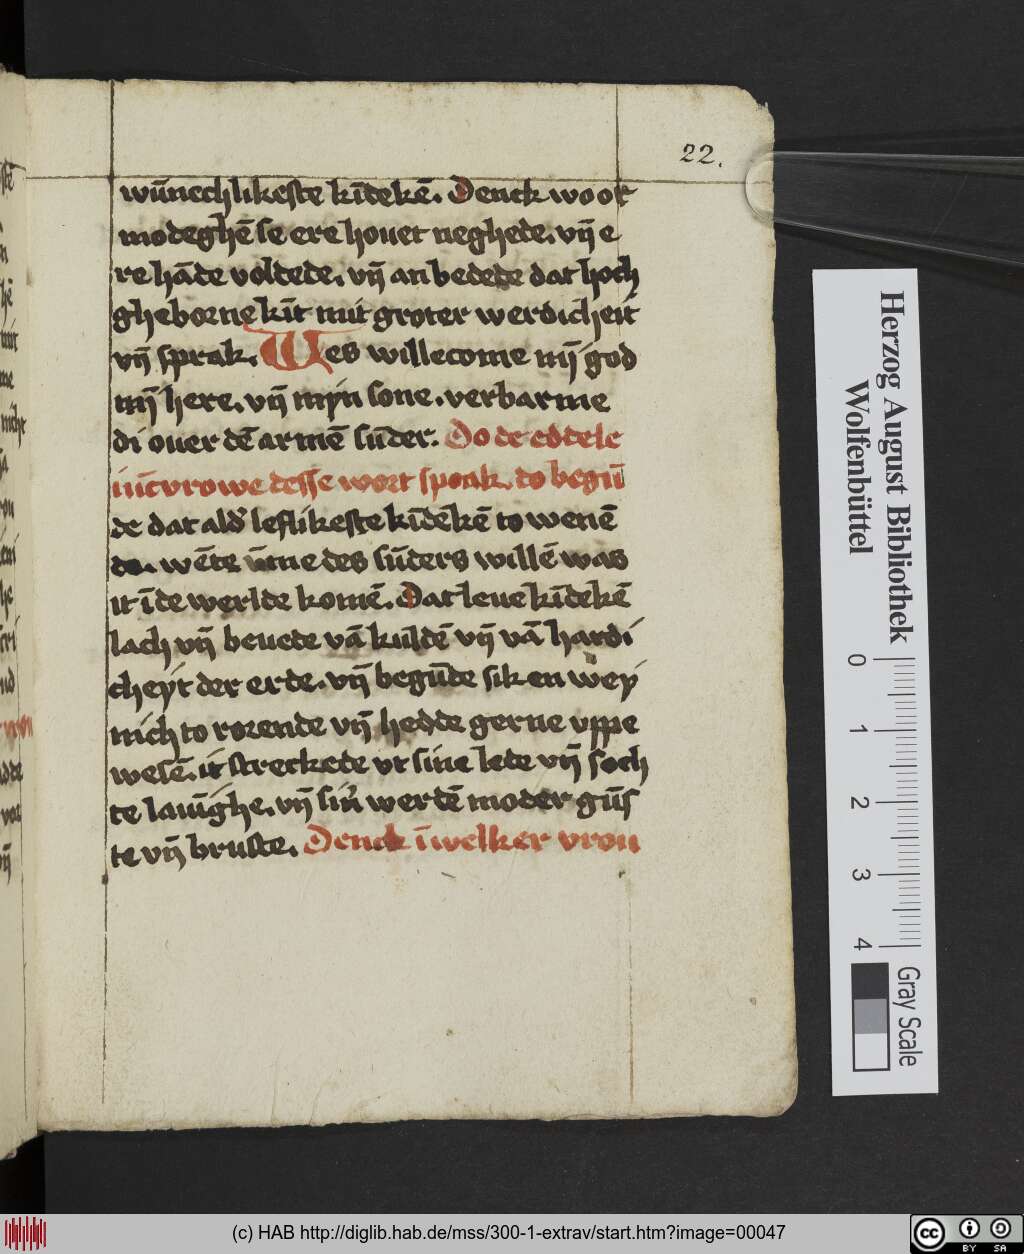 22.
wūnechlikeste kīdekē. Denck wo ot
modeghē se ere houet neghede. vn̄ e
re hāde voldede. vn̄ an bedede dat hoch
gheborne kīt mit groter werdicheit
vn̄ sprak. Wes willecome mȳ god
mȳ here. vn̄ mijn sone. verbarme
di ouer dē armē sūder. Do de eddele
iūcvrowe desse wort sprak. do begū
de dat ald' leflikeste kīdēkē to wenē
de. wēte ūme des sūders willē was
it ī de werlde komē. Dat leue kīdekē
lach vn̄ beuede vā kuldē vn̄ vā hardi
cheyt der erde. vn̄ begūde sik en wey
nich to rorende vn̄ hedde gerne vppe
wesē. it streckede vt sine lede vn̄ soch
te lauīghe. vn̄ sin' werdē moder gūs
te vn̄ bruste. Denck ī welker vrou
Herzog August Bibliothek
Wolfenbüttel
0 1 2 3 4
Gray Scale
(c) HAB http://diglib.hab.de/mss/300-1-extrav/start.htm?image=00047
cc BY SA